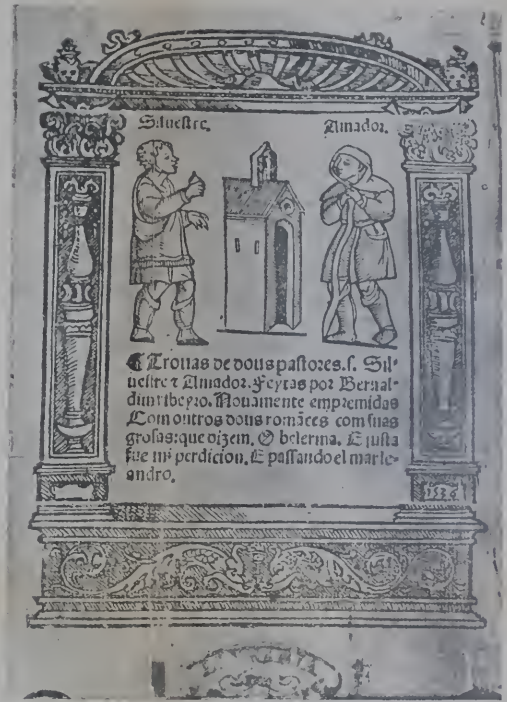 Siluestre.
Amador.
Trouas de dous pastores.s. Sil-
uestre ⁊ Amador. Feytas por Bernal-
dim ribeyro. Nouamente empremidas
Com outros dous romãces com suas
grosas: que dizem. O belerma. E justa
fue mi perdicion. E passando el mar le-
andro.
1536